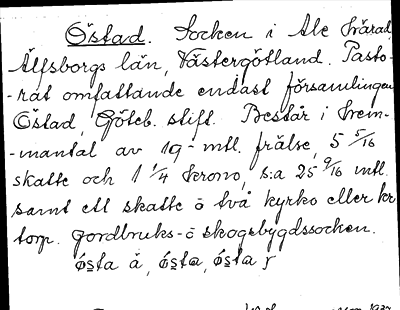 Östad. Socken i Ale härad
Älfsborgs län, Västergötland. Pasto-
-rat omfattande endast församlingen
Östad, Göteb. stift. Består i hem-
-mantal av 19 - mtl. frälse, 5 5/16
skatte och 1 1/4 krono, s:a 25 9/16 mtl.
samt ett skatte o två kyrko eller kr
torp. Jordbruks- o skogsbygdssocken.
östa å, östa, östa